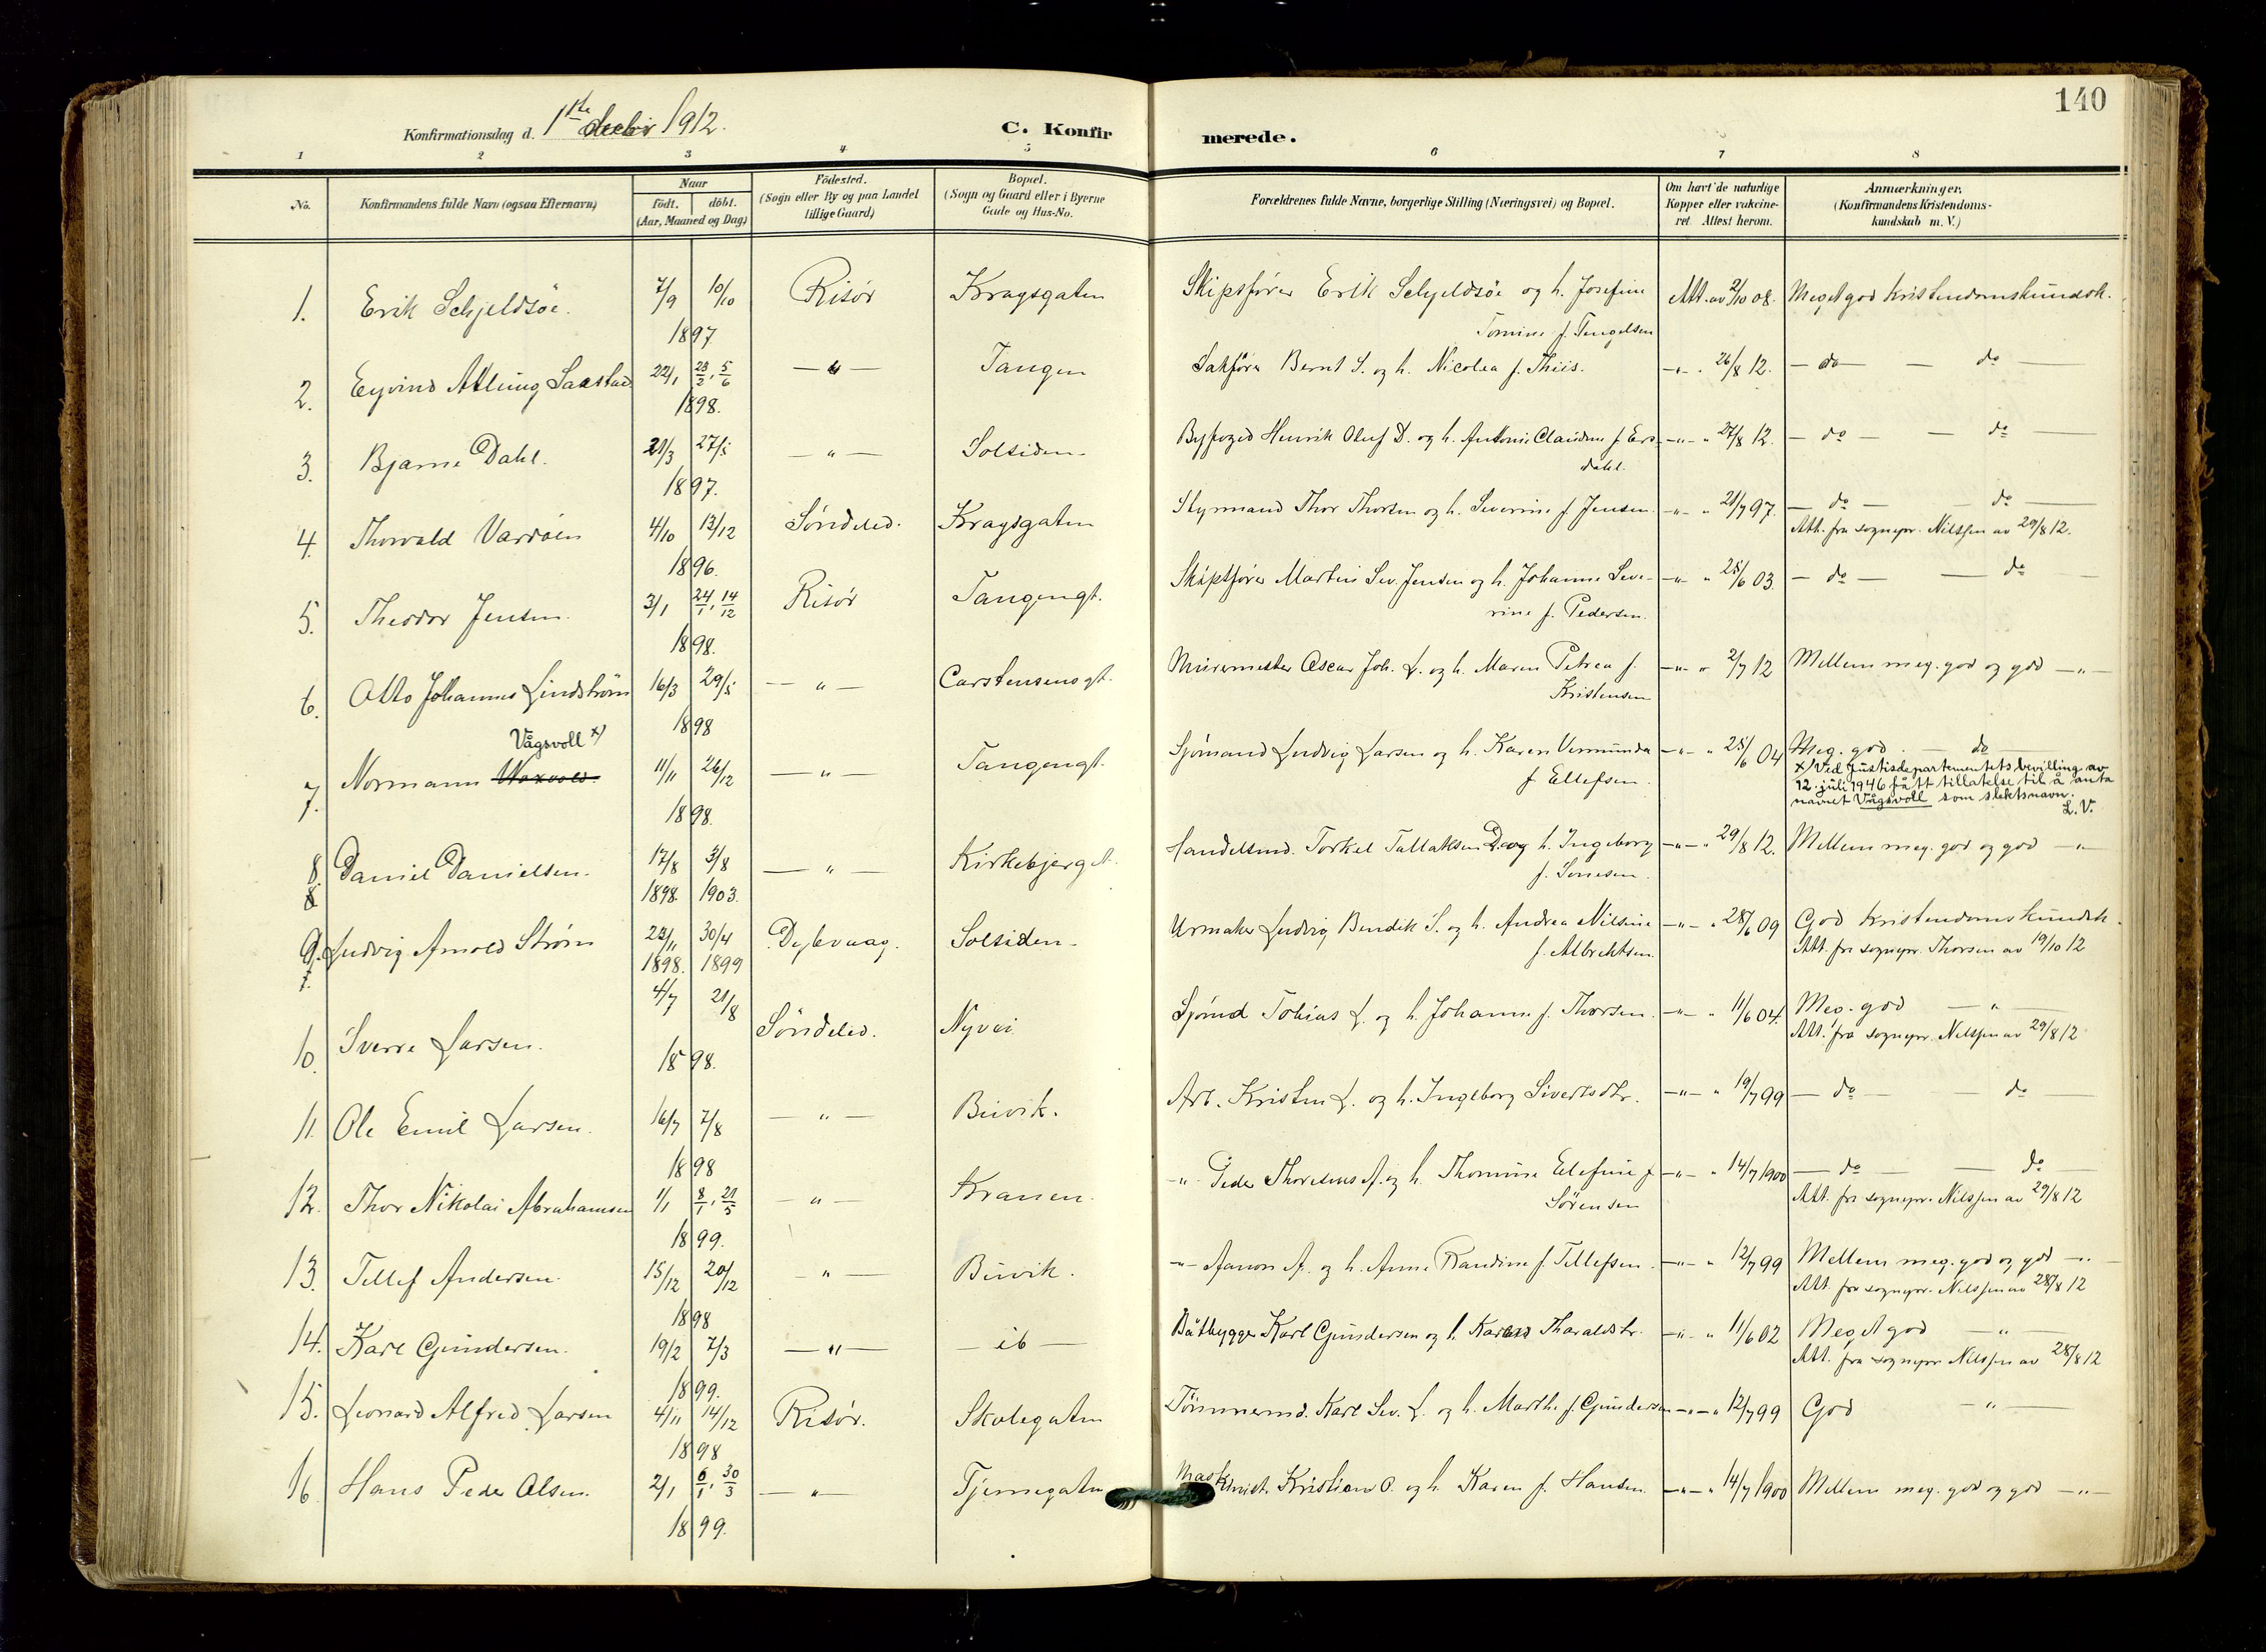 140
Konfirmationsdag d. 1ste decbr 1912. C. Konfirmerede.
1 2 3 4 5 6 7 8
No. Konfirmandens fulde Navn (ogsaa Efternavn) Naar födt. döbt. (Aar, Maaned og Dag) Födested. (Sogn eller By og paa Landet tillige Gaard) Bopæl. (Sogn og Gaard eller i Byerne Gade og Hus-No. Forældrenes fulde Navne, borgerlige Stilling (Næringsvei) og Bopæl. Om havt de naturlige Kopper eller vakcineret. Attest herom. Anmærkninger. (Konfirmandens Kristendomskundskab m. V.)
1. Erik Schjeldsöe. 7/9 10/10 Risør Kragsgaten Skipsfører Erik Schjeldsöe og h. Josefine Att. av 2/10 08. Meget god kristendomskundsk.
1897. Tomine f. Tengelsen
2. Eyvind Atling Saastad 22/1 23/2, 5/6 — " — Tangen Sakfører Bernt S. og h. Nicolea f. Thiis. — " — " 26/8 12. — do — — do —
1898.
3. Bjarne Dahl. 21/3 27/5 — " — Solsiden. Byfoged Henrik Oluf D. og h. Antonie Claudine f. Ers- — " — " 27/8 12. — do — — do —
1897. dahl.
4. Thorvald Vardöen 4/10 13/12 Söndeled. Kragsgaten Styrmand Thor Thorsen og h. Severine f. Jensen. — " — " 21/7 97. — do — — do —
1896. Att. fra sognepr. Nilssen av 29/8 12.
5. Theodor Jensen. 3/1 24/1, 14/12 Risör Tangengt. Skipsfører Martin Sev. Jensen og h. Johanne Seve- — " — " 25/6 03. — do — — do —
1898. rine f. Pedersen.
6. Otto Johannes Lindström 16/3 29/5 — " — Carstensensgt. Murermester Oscar Joh. L. og h. Maren Petrea f. — " — " 2/7 12 Mellem meg. god og god — " —
1898 Kristensen
Vågsvoll x)
7. Normann 11/11 26/12 — " — Tangengt. Sjömand Ludvig Larsen og h. Karen Vemunda — " — " 25/6 04 Meg. god. — do —
1898. f. Ellefsen. x) Ved Justisdepartementets bevilling av
12. juli 1946 fått tillatelse til å anta
navnet Vågsvoll som slektsnavn.
L.V.
8. Daniel Danielsen. 17/8 3/8 — " — Kirkebjerget. Handelsmd. Torkel Tallaksen D. og h. Ingeborg — " — " 29/8 12. Mellem meg. god og god — " —
8 1898. 1903. f. Sønesen.
9. Ludvig Arnold Ström 22/11 30/4 Dybvaag. Solsiden. Urmaker Ludvig Bendik S. og h. Andrea Nilsine — " — " 28/6 09 God kristendomskundsk.
1898. 1899 f. Albrektsen. Att. fra sognepr. Thorsen av 19/10 12
10. Sverre Larsen. 4/7 21/8 Söndeled. Nyvei Sjömd Tobias L. og h. Johanne f. Thorsen. — " — " 11/6 04. Meg. god — " —
1898. Att. fra sognepr. Nilssen av 29/8 12
11. Ole Emil Larsen. 16/7 7/8 — " — Buvik. Arb. Kristen L. og h. Ingeborg Sivertsdtr. — " — " 19/7 99 — do — — do —
1898
12. Thor Nikolai Abrahamsen 1/1 8/1, 21/5 — " — Kranen. — " — Peder Thoresens A. og h. Thomine Elefine f — " — " 14/7 1900 — do — — do —
1899. Sörensen Att. fra sognepr. Nilssen av 29/8 12
13. Tellef Andersen. 15/12 20/12 — " — Buvik. — " — Aanon A. og h. Anne Randine f. Tellefsen. — " — " 12/7 99 Mellem meg. god og god — " —
1898 Att. fra sognepr. Nilssen av 28/8 12
14. Karl Gundersen. 19/2 7/3 — " — — ib — Båtbygger Karl Gundersen og h. Karen Tharaldsdtr. — " — " 11/6 02 Meget god — " —
1899. Att. fra sognepr. Nilssen av 28/8 12
15. Leonard Alfred Larsen 4/11 14/12 Risör. Skolegaten Tömmermd. Karl Sev. L. og h. Marthe f. Gundersen — " — " 12/7 99 God — " —
1898
16. Hans Peder Olsen. 2/1 6/1, 30/3 — " — Tjennegaten Maskinist. Kristian O. og h. Karen f. Hansen. — " — " 14/7 1900 Mellem meg. god og god — " —
1899.